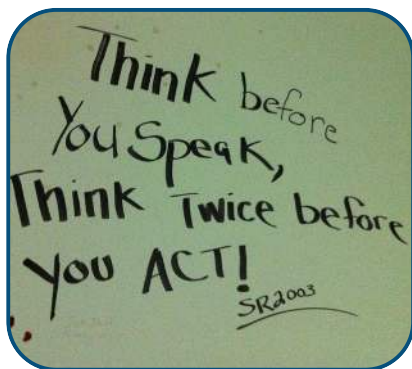 Think before
You Speak,
Think Twice before
you ACT!
SR2003